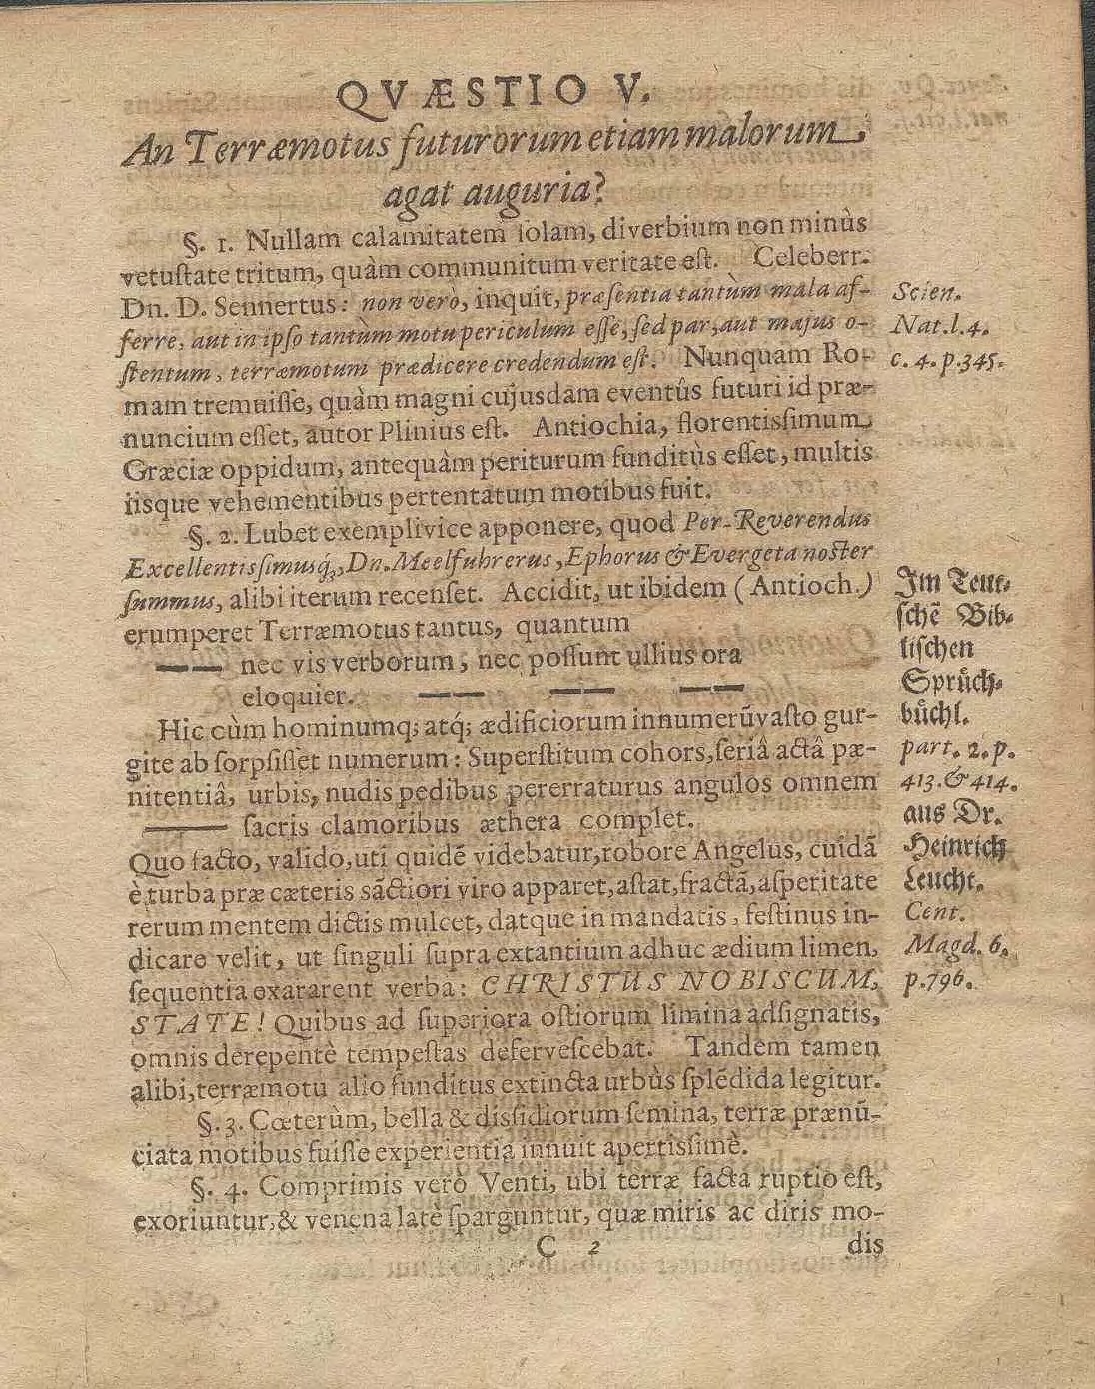 QVÆSTIO V.
An Terræmotus futurorum etiam malorum
agat auguria?
§. 1. Nullam calamitatem ſolam, diverbium non minùs
vetuſtate tritum, quàm communitum veritate eſt. Celeberr.
Dn. D. Sennertus: non verò, inquit, præſentia tantùm mala af-
ferre, aut in ipſo tantùm motu periculum eſſe, ſed par, aut majus o-
ſtentum, terræmotum prædicere credendum eſt. Nunquam Ro-
mam tremuiſſe, quàm magni cujusdam eventûs futuri id præ-
nuncium eſſet, autor Plinius eſt. Antiochia, florentiſſimum
Græciæ oppidum, antequàm periturum funditùs eſſet, multis
iisque vehementibus pertentatum motibus fuit.
Scien.
Nat.l.4.
c. 4. p.345.
§. 2. Lubet exemplivice apponere, quod Per-Reverendus
Excellentisſimusq́;, Dn. Meelfuhrerus, Ephorus & Evergeta noſter
ſummus, alibi iterum recenſet. Accidit, ut ibidem (Antioch.)
erumperet Terræmotus tantus, quantum
—— nec vis verborum, nec poſſunt ullius ora
eloquier. —— —— ——
Hic cùm hominumq; atq́; ædificiorum innumerũ vaſto gur-
gite ab ſorpſiſſet numerum: Superſtitum cohors, ſeriâ actâ pæ-
nitentiâ, urbis, nudis pedibus pererraturus angulos omnem
—— ſacris clamoribus æthera complet.
Quo facto, valido, uti quidẽ videbatur, robore Angelus, cuidã
è turba præ cæteris sãctiori viro apparet, aſtat, fractã, aſperitate
rerum mentem dictis mulcet, datque in mandatis, feſtinus in-
dicare velit, ut ſinguli ſupra extantium adhuc ædium limen,
ſequentia exararent verba: CHRISTUS NOBISCUM,
STATE! Quibus ad ſuperiora oſtiorum limina adſignatis,
omnis derepentè tempeſtas deferveſcebat. Tandem tamen
alibi, terræmotu alio funditus extincta urbùs ſplẽdida legitur.
Im Teut-
ſchẽ Bib-
liſchen
Sprůch-
bůchl.
part. 2. p.
413. & 414.
aus Dr.
Heinrich
Leucht.
Cent.
Magd. 6.
p.796.
§. 3. Cœterùm, bella & diſſidiorum ſemina, terræ prænũ-
ciata motibus fuiſſe experientia innuit apertiſſimè.
§. 4. Comprimis verò Venti, ubi terræ facta ruptio eſt,
exoriuntur, & venena latè ſparguntur, quæ miris ac diris mo-
C 2 dis